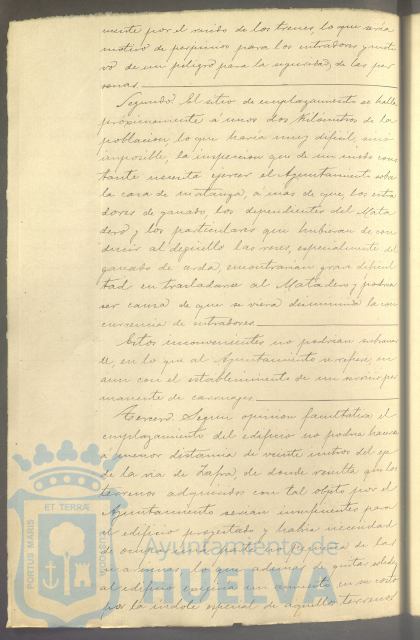 mente por el ruido de los trenes, lo que sería
motivo de perjuicios para los entradores y moti
vo de un peligro para la seguridad de las per
sonas.
Segundo. El sitio de emplazamiento se halla
próximamente á unos dos kilómetros de la
población, lo que haría muy difícil, sinó
imposible, la inspección que de un modo cons
tante necesita ejercer el Ayuntamiento sobre
la casa de matanza, á mas de que, los entra
dores de ganado, los dependientes del Mata
dero y los particulares que hubieran de con
ducir al degüello las reses, especialmente del
ganado de cerda, encontrarían gran dificul
tad en trasladarse al Matadero y podría
ser causa de que se viera disminuida la con
currencia de entradores.
Estos inconvenientes no podrían subsanar
se, en lo que al Ayuntamiento se refiere, ni
aun con el establecimiento de un servicio per
manente de carruajes.
Tercero. Según opinión facultativa el
emplazamiento del edificio no podría hacerse
á menor distancia de veinte metros del eje
de la vía de Zafra, de donde resulta que los
terrenos adquiridos con tal objeto por el
Ayuntamiento serían insuficientes para
el edificio proyectado y habría necesidad
de ocupar una parte no pequeña de las
lo que además de quitar solidez
al edificio exigiría un aumento en su costo
por la índole especial de aquellos terrenos
PORTUS MARIS
ET TERRÆ
CUSTODIA
Ayuntamiento de
HUELVA